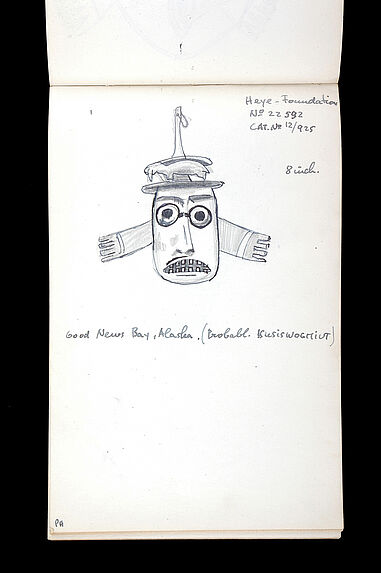 Heye-Foundation
No 22592
CAT.No 12/925
8 inch.
Good News Bay, Alaska. (Probabl. KUSISWOGMIUT)
PA